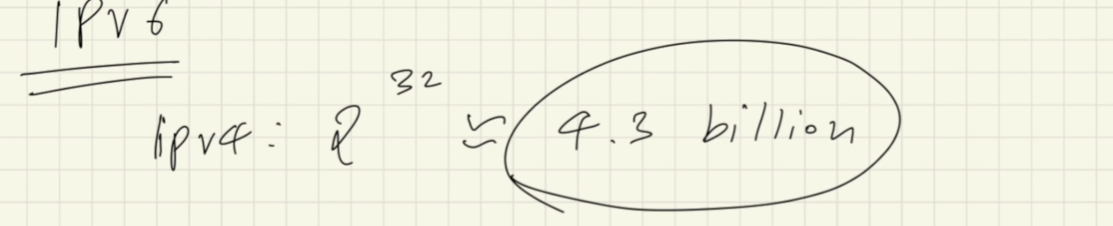 IPv6
ipv4: 2^32 ≈ 4.3 billion